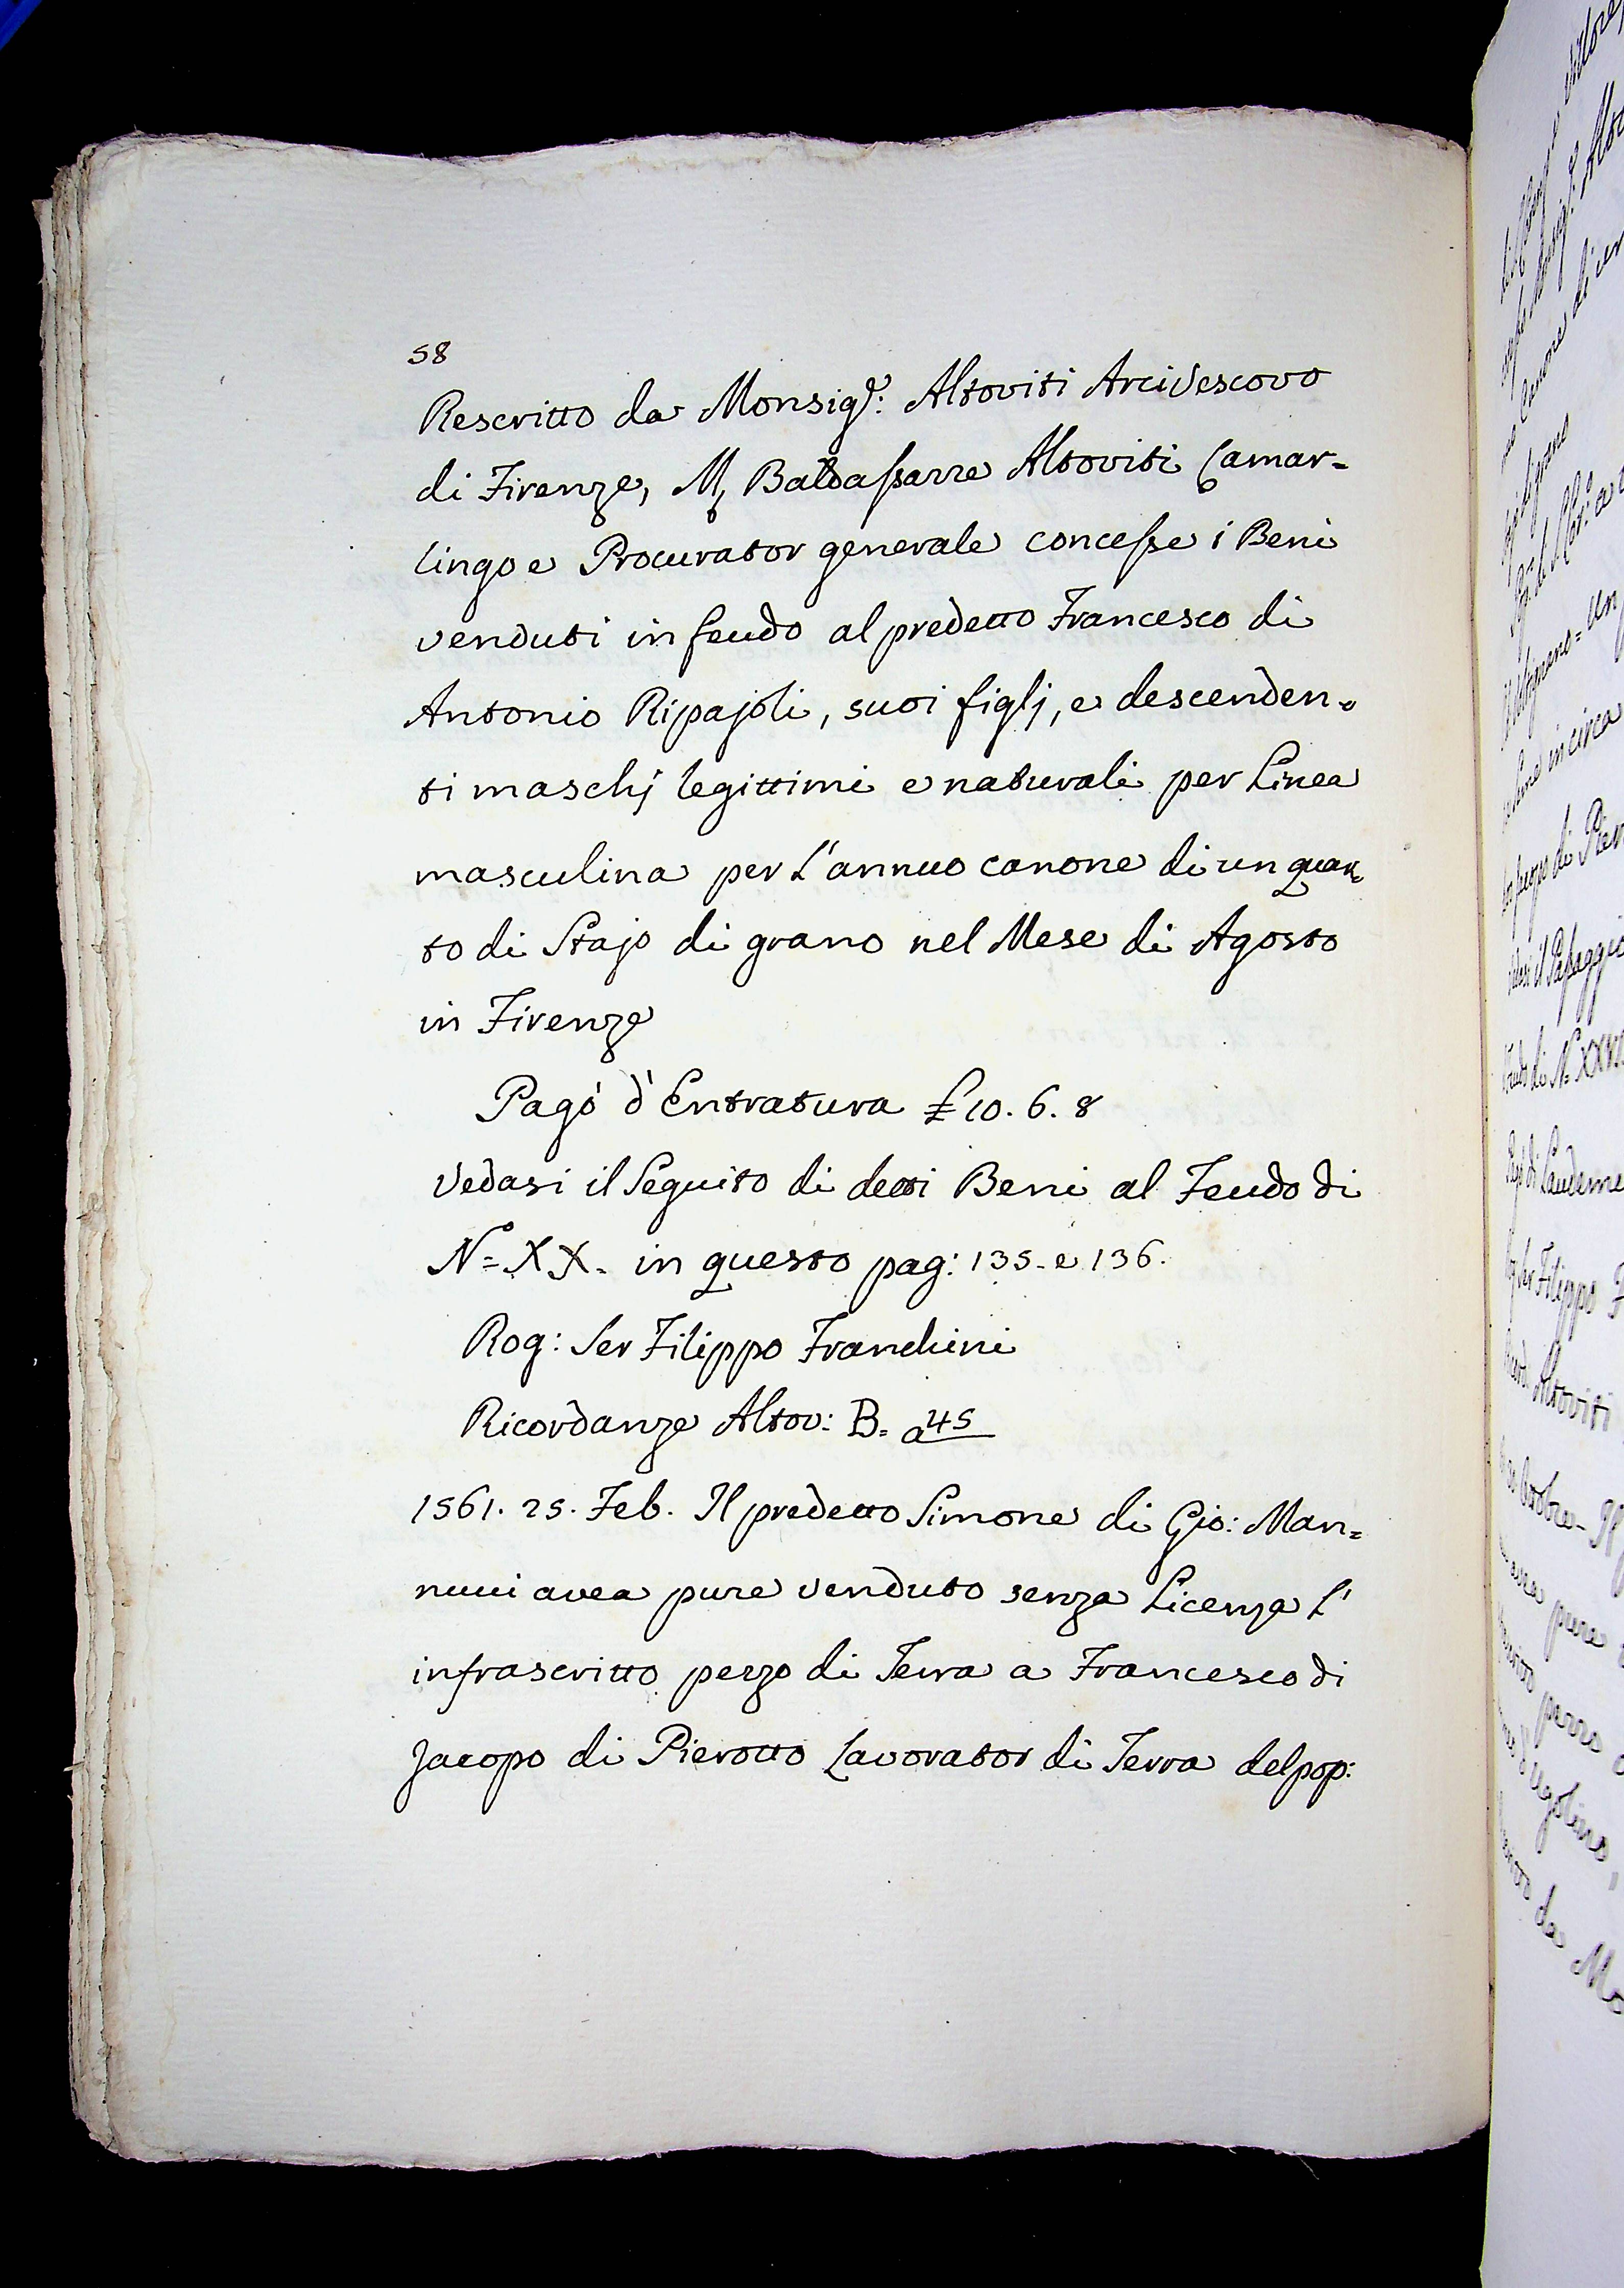 58
Rescritto da Monsig.r: Altoviti Arcivescovo
di Firenze, M, Baldassarre Altoviti Camar=
lingo e Procurator generale concesse i Beni
venduti in feudo al predetto Francesco di
Antonio Ripajoli, suoi figlj, e descenden=
ti maschj legittimi e naturali per Linea
masculina per l'annuo canone di un quar=
to di Stajo di grano nel Mese di Agosto
in Firenze
Pagò d'Entratura £ 10. 6. 8
Vedasi il Seguito di detti Beni al Feudo di
N= XX. in questo pag: 135. e 136.
Rog: Ser Filippo Franchini
Ricordanze Altov: B. a 45
1561. 25. Feb. Il predetto Simone di Gio: Man=
nucci avea pure venduto senza Licenza l'
infrascritto pezzo di Terra a Francesco di
Jacopo di Pierotto Lavorator di Terra del pop: